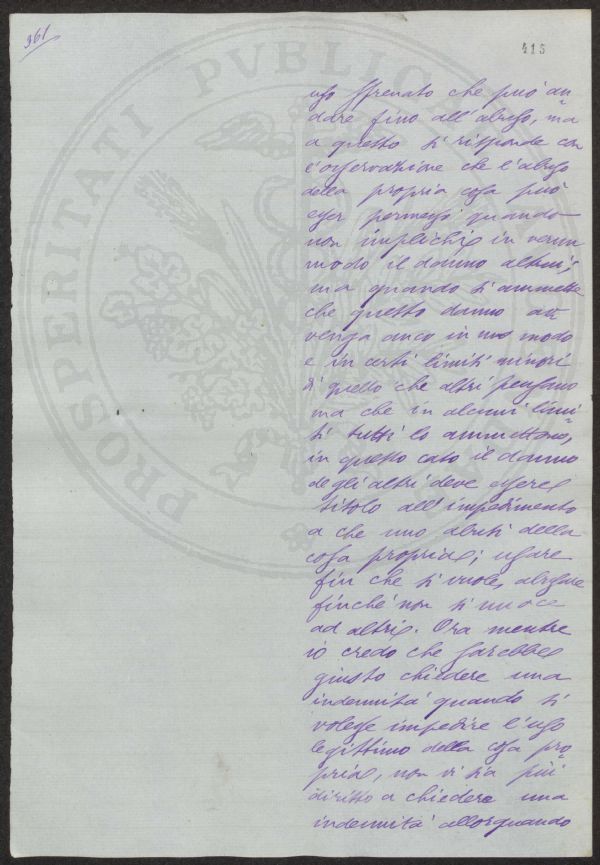 961
415
PROSPERITATI PUBLICAE
uso sfrenato che può an
dare fino all'abuso, ma
a questo si risponde con
l'osservazione che l'abuso
della propria cosa può
esser permesso quando
non implichi in verun
modo il danno altrui;
ma quando si ammette
che questo danno av
venga anco in un modo
e in certi limiti minori
di quello che altri pensano
ma che in alcuni limi
ti tutti lo ammettono,
in questo caso il danno
degli altri deve essere
titolo all'impedimento
a che uno abusi della
cosa propria; usare
fin che si vuole, abusare
finché non si nuoce
ad altri. Ora mentre
io credo che sarebbe
giusto chiedere una
indennità quando si
volesse impedire l'uso
legittimo della cosa pro
pria, non vi sia più
diritto a chiedere una
indennità allorquando